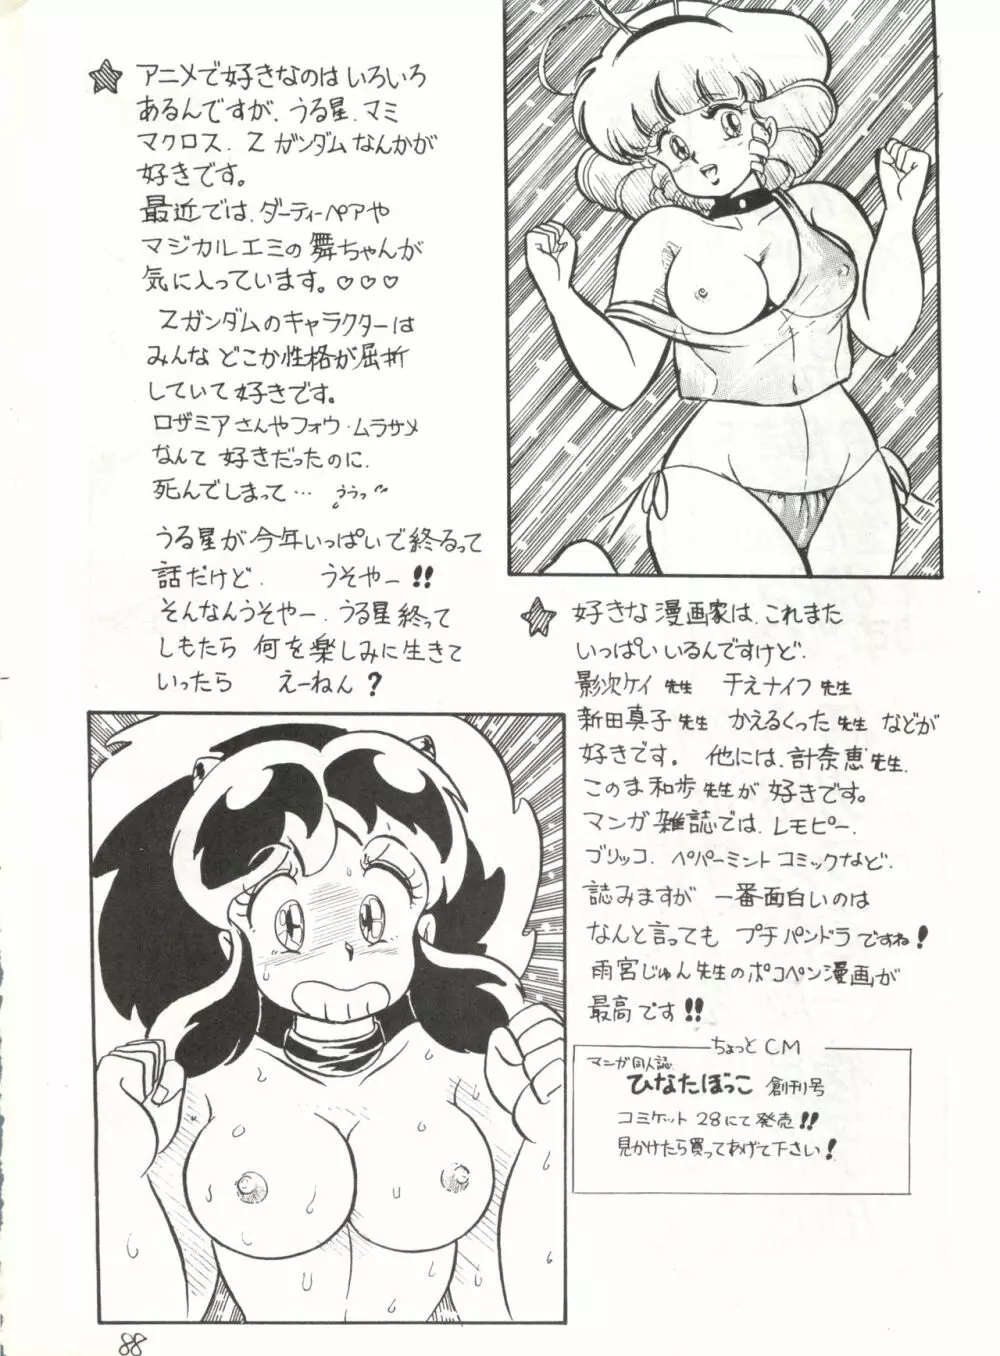 アニメで好きなのは いろいろ
あるんですが、うる星、マミ
マクロス、Z ガンダムなんかが
好きです。
最近では、ダーティーペアや
マジカル エミの 舞ちゃんが
気に入っています。♡♡♡
Zガンダムのキャラクターは
みんな どこか性格が屈折
していて 好きです。
ロザミアさんやフォウ・ムラサメ
なんて 好きだったのに、
死んでしまって… ううっ
うる星が今年いっぱいで終るって
話だけど、 うそやー!!
そんなんうそやー、うる星 終って
しもたら 何を楽しみに生きて
いったら えーねん?
好きな漫画家は、これまた
いっぱい いるんですけど、
影次ケイ先生 千えナイフ先生
新田真子先生 かえるくった先生 などが
好きです。 他には、計奈恵先生、
このま和歩先生が 好きです。
マンガ雑誌では、レモピー、
ブリッコ、ペパーミントコミックなど、
読みますが 一番面白いのは
なんと言っても プチパンドラですね!
雨宮じゅん先生のポコペン漫画が
最高です!!
ちょっとCM
マンガ同人誌
ひなたぼっこ 創刊号
コミケット 28にて発売!!
見かけたら買ってあげて下さい!
88